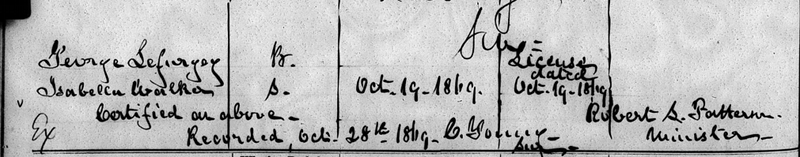 Sur=
George Lefurgey B. License
dated
Isabella Walker S. Oct. 19-1869. Oct. 19-1869
Certified as above- Robert S. Patterson
Ex Recorded, Oct. 28th 1869- C. Young- Minister-
Sur-